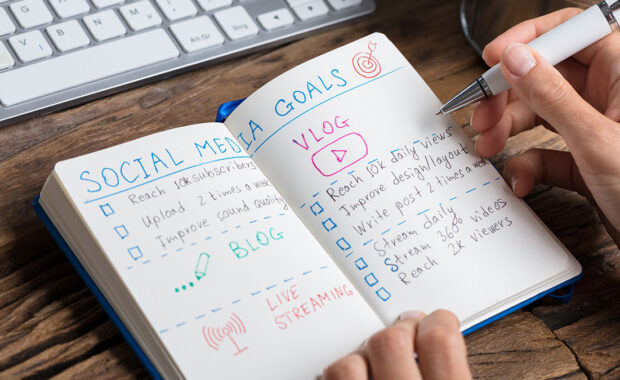 SOCIAL MEDIA GOALS
Reach 10k subscribers
Upload 2 times a week
Improve sound quality
BLOG
LIVE
STREAMING
VLOG
Reach 10k daily views
Improve design/layout
Write post 2 times a week
Stream daily
Stream 360° videos
Reach 2k viewers
V B N M
Alt Gr Ctrl